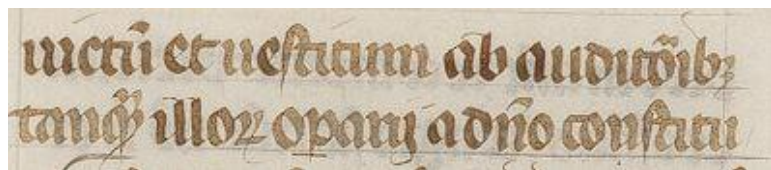 uictū et uestitum ab auditōibꝫ
tanqͣꝫ illoꝝ oꝑarij a dn̄o constitu